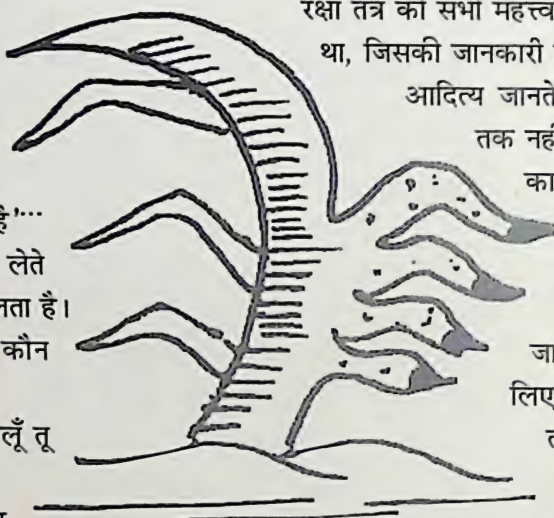 रक्षा तंत्र की सभी महत्त्व
था, जिसकी जानकारी
आदित्य जानते
तक नहीं
का
है'...
लेते
लता है।
कौन
जा
लिए
लूँ तू